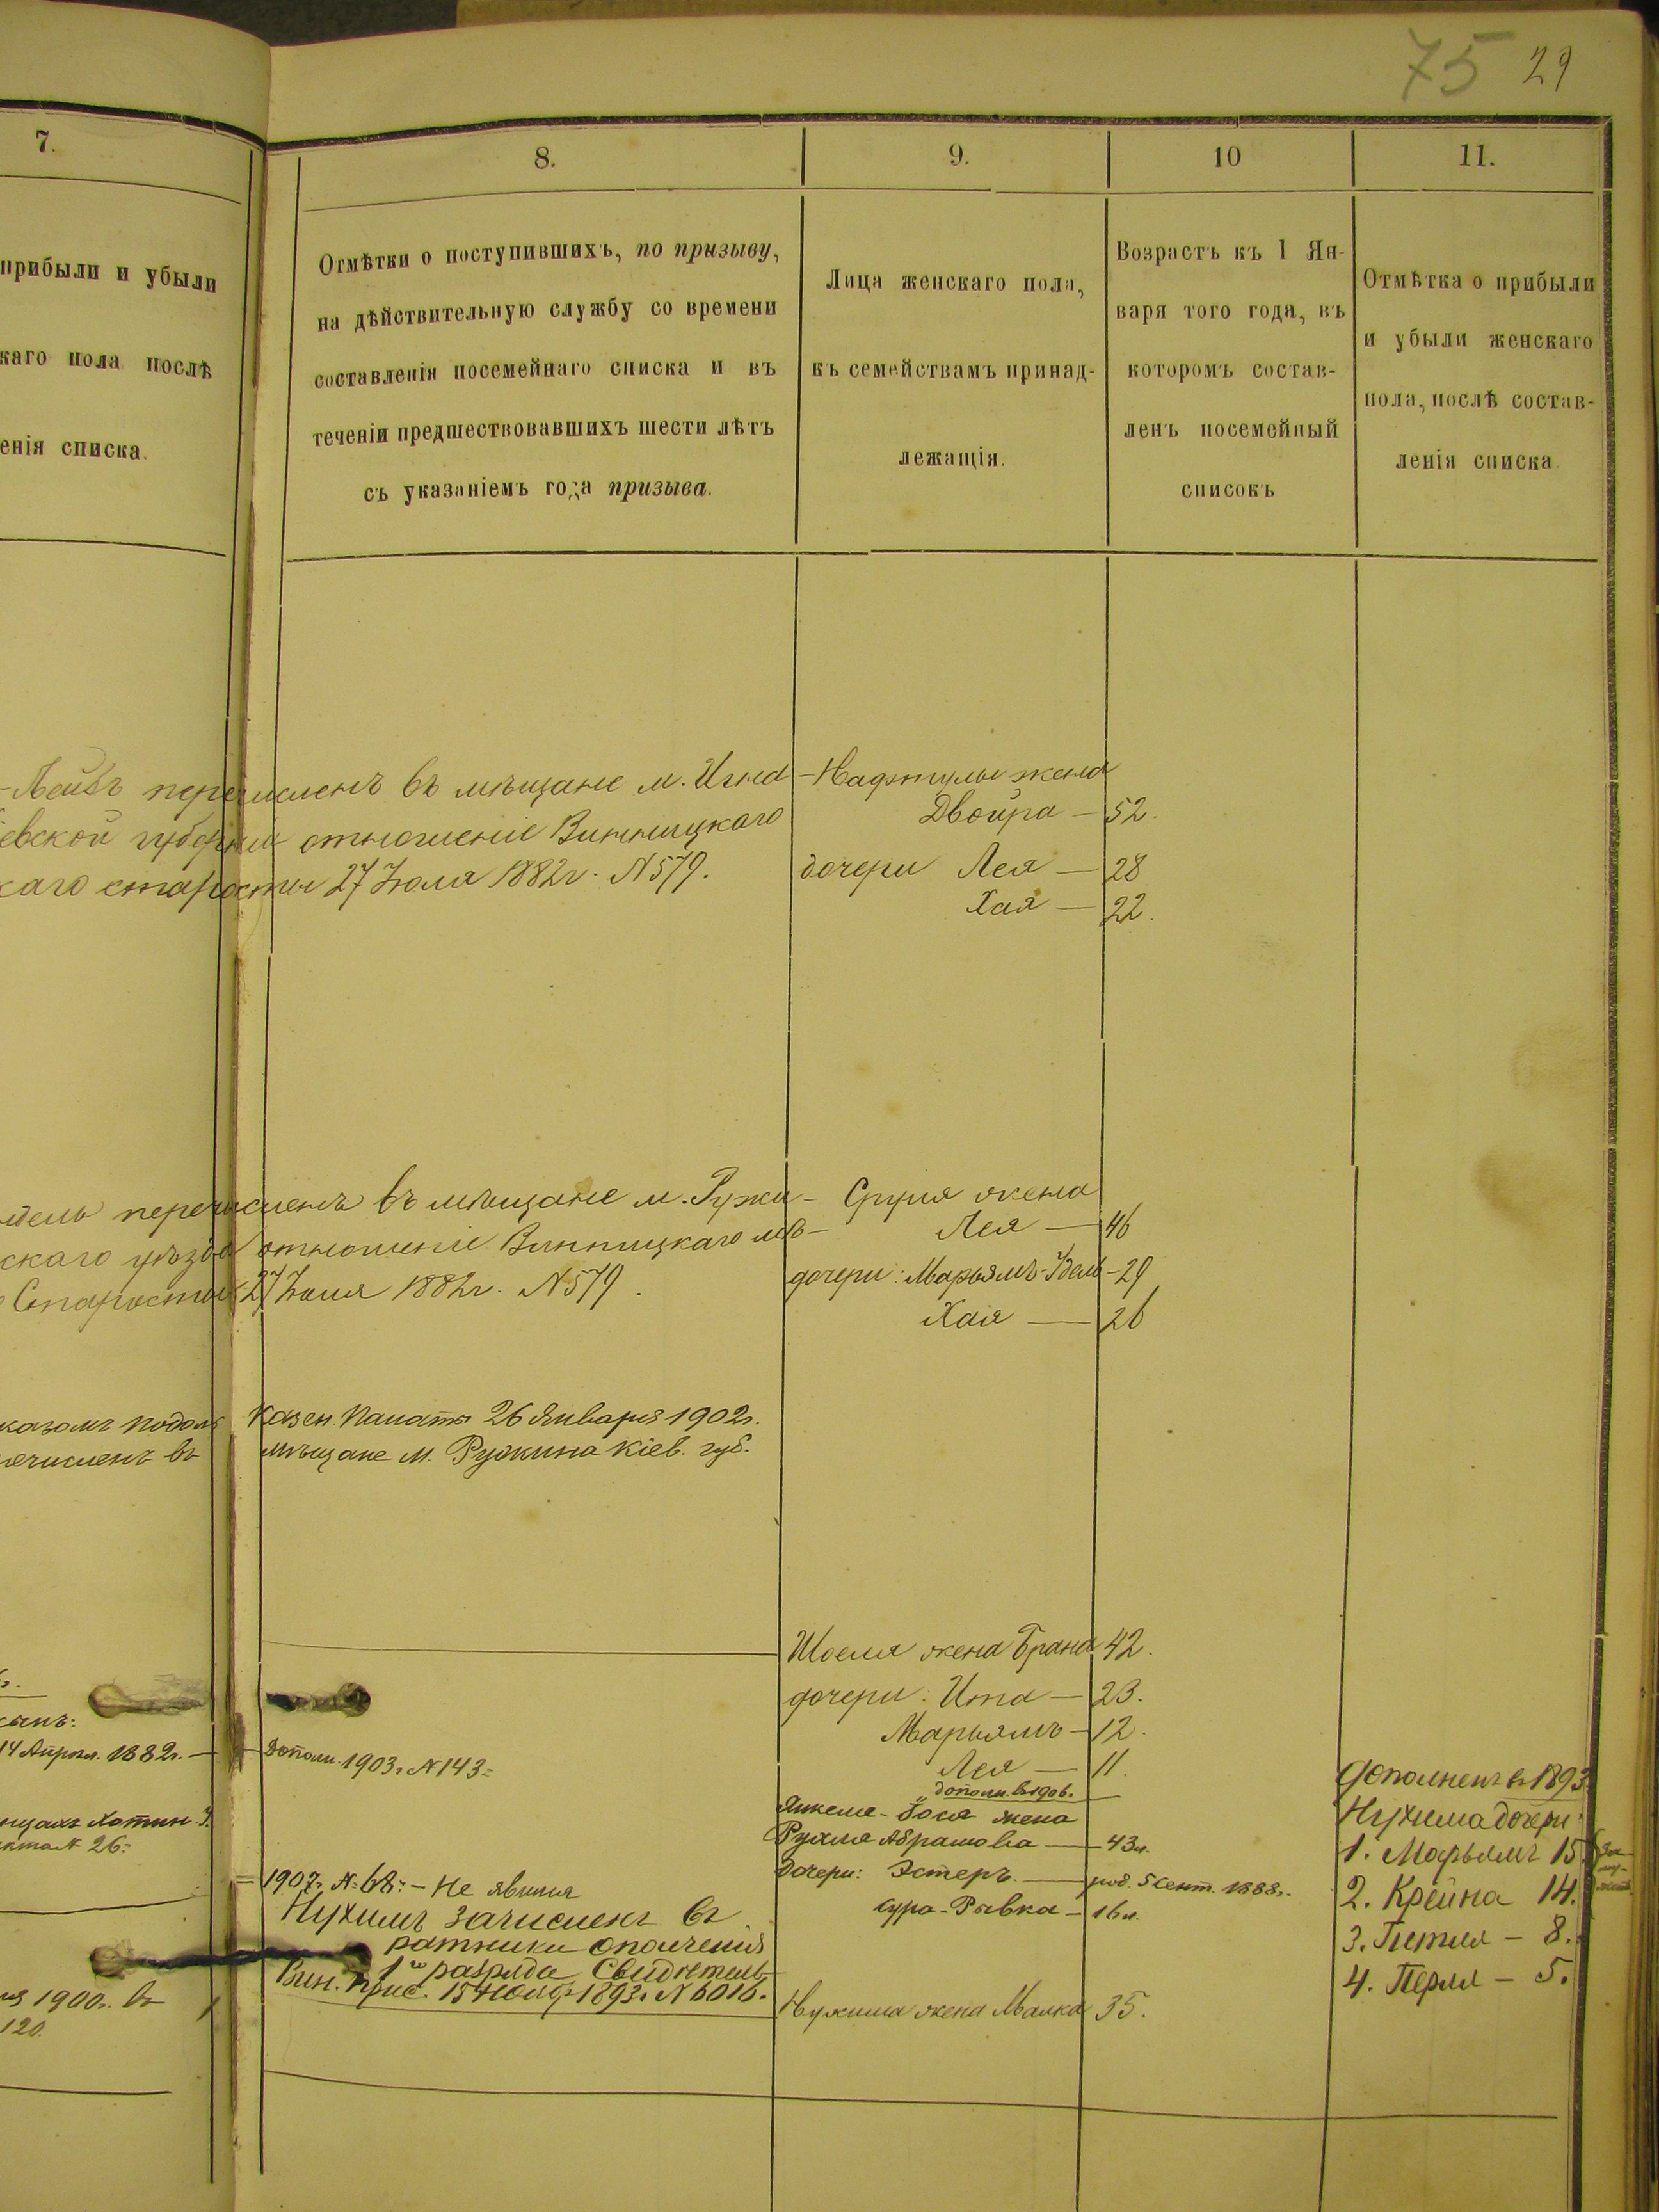 75 29
7.
8.
9.
10
11.
прибыли и убыли
каго пола послѣ
енія списка.
Отмѣтки о поступившихъ, по призыву,
на дѣйствительную службу со времени
составленія посемейнаго списка и въ
теченіи предшествовавшихъ шести лѣтъ
съ указаніемъ года призыва.
Лица женскаго пола,
къ семействамъ принад-
лежащія.
Возрастъ къ 1 Ян-
варя того года, въ
которомъ состав-
ленъ посемейный
списокъ
Отмѣтка о прибыли
и убыли женскаго
пола, послѣ состав-
ленія списка
-Лейбъ перечисленъ въ мѣщане м. Игна-
евской губерніи отношеніе Винницкаго
каго старосты 27 Іюля 1882 г. N 579.
Нафтулы жена
Двойра — 52.
дочери Лея — 28
Хая — 22.
перечисленъ въ мѣщане м. Ружи-
скаго уѣзда отношеніе Винницкаго мѣ-
Старосты 27 Іюля 1882 г. N 579.
Сруля жена
Лея — 46
дочери: Марьямъ-Удель - 29
Хая — 26
казомъ Подол. Казен. Палаты 26 Января 1902 г.
речисленъ въ мѣщане м. Ружина Кіев. губ.
сынъ:
14 Апрѣл. 1882 г. —
Дополн. 1903 г. N 143 =
Хотин. У.
N 26 =
= 1907 г. N 68: — Не явился
Нухимъ зачисленъ въ
ратники ополченія
1го разряда Свидѣтель
Вин. Прис. 15 Нояб. 1893 г. N 6016.
1900 г. въ
120.
Шоеля жена Брана 42.
дочери: Ита — 23.
Марьямъ — 12.
Лея — 11.
дополн. въ 1906.
Янкеля-Іося жена
Рухля Абрамова — 43 л.
Дочери: Эстеръ — род. 5 Сент. 1888 г.
Сура-Рывка — 16 л.
Нухима жена Малка 35.
Дополненъ въ 1893
Нухима дочери:
1. Марьямъ 15
2. Крейна 14.
3. — 8.
4. Перля — 5.